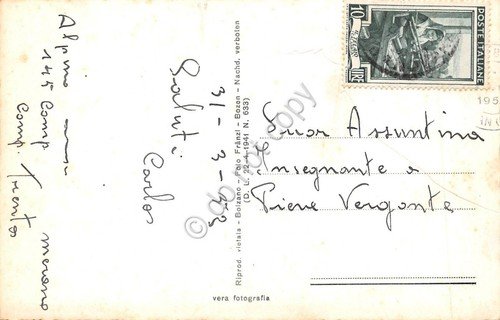 Alpino
145 Comp Merano
Comp. Trento
Saluti
Carlos
31-3-53
Riprod. vietata - Bolzano - Foto Fränzl - Bozen - Nachd. verboten
(D. L. 22-4-1941 N. 633)
vera fotografia
10 POSTE ITALIANE
LIRE
195
IN
Suor Assuntina
Insegnante a
Pieve Vergonte